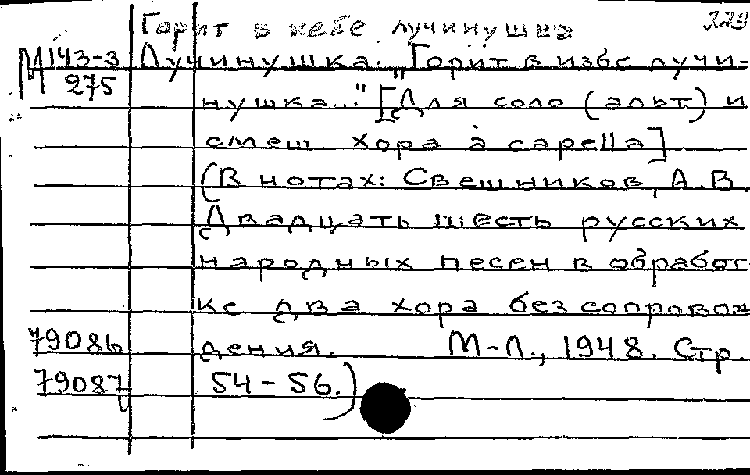 Горит в небе лучинушка 229
М 143-3 Лучинушка. "Горит в избе лучи-
275 нушка..." [Для соло (альт) и
смеш хора à capella]
(В нотах: Свешников, А.В.
Двадцать шесть русских
народных песен в обработ-
ке два хора без сопровож
79086 дения. М-Л., 1948. Стр.
79087 54-56.)